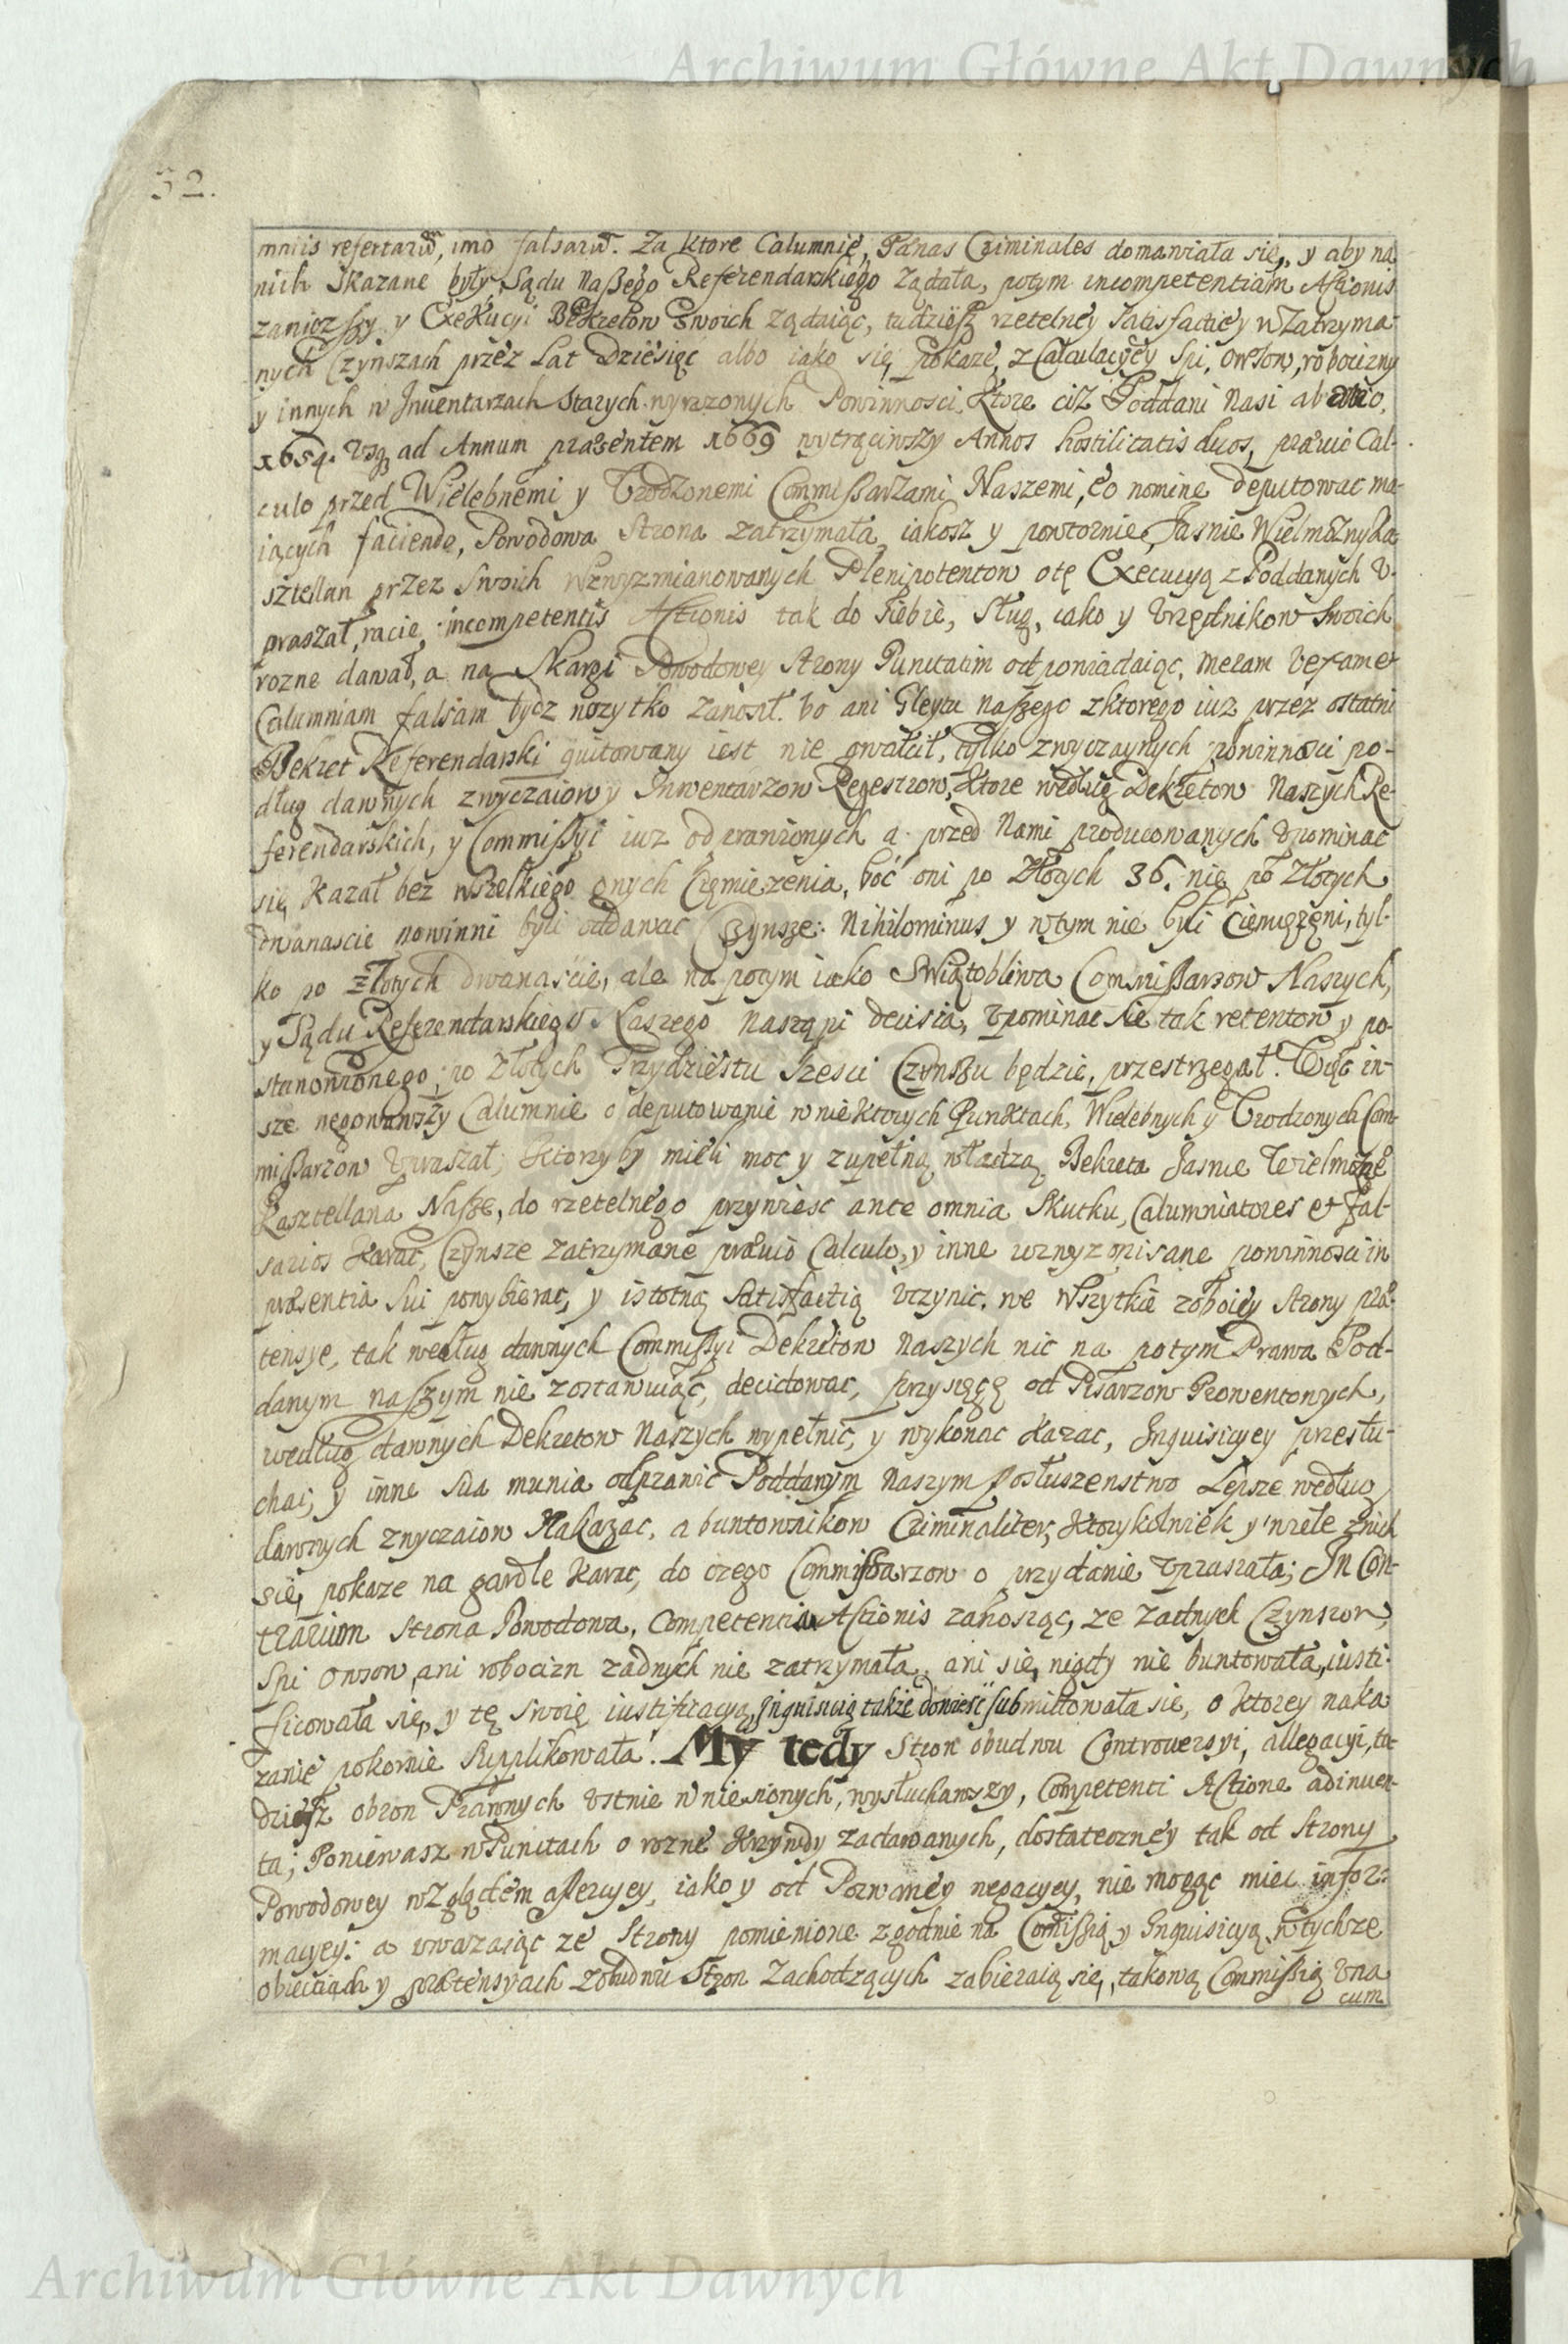 Archiwum Główne Akt Dawnych
32.
mniis refertarũ, imo falsarũ. Za ktore Calumnię, Pænas Criminales domawiała się, y aby na
nich skazane były, Sądu Naszego Referendarskiego ządała, potym incompetentiam Actionis
zaniozszy y Exekucyi Dekretow swoich ządaiąc, tudziesz rzetelney satisfactiey w zatrzyma-
nych Czynszach przez Lat Dziesięć albo iako się pokaze, z Calculacyey Spi, owsow, robocizny
y innych w Inwentarzach starych wyrazonych Powinnosci, Ktore ciż Poddani Nasi ab anno
1654. usq ad Annum præsentem 1669 wytrąciwszy Annos hostilitatis duos, prævie Cal-
culo przed Wielebnemi y Urodzonemi Commissarzami Naszemi, eo nomine deputowac ma-
iących faciendo, Powodowa Strona zatrzymała, iakosz y powtornie Jasnie Wielmozny Ka-
sztellan przez Swoich wzwyzmianowanych Plenipotentow otę Execucyą z Poddanych u-
praszał, racie incompetentis Actionis tak do siebie, Sług, iako y Urzędnikow Swoich
rozne dawał, a na Skargi Powodowey Strony Punctatim odpowiadaiąc, meram vexam et
Calumniam falsam bydz wszytko zanosił. bo ani Gleytu naszego zktorego iuz przez ostatni
Dekret Referendarski quitowany iest nie gwałcił, tylko zwyczaynych powinnosci po-
dług dawnych zwyczaiow y Inwentarzow Regestrow, Ktore według Dekretow Naszych Re-
ferendarskich, y Commissyi iuz odprawionych a przed Nami producowanych upominac
się kazał bez wszelkiego onych Ciemiezenia, boć oni po Złotych 36. nie po Złotych
dwanascie powinni byli oddawac Czynsze: Nihilominus y wtym nie byli Ciemięzeni, tyl-
ko po Złotych dwanascie, ale na potym iako Swiątobliwa Commissarzow Naszych,
y Sądu Referendarskiego Naszego nastąpi decisia, upominac się tak retentow y po-
stanowionego po Złotych Trzydziestu szesci Czynszu będzie, przestrzegał. Więc in-
sze negowawszy Calumnie o deputowanie wniektorych Punktach, Wielebnych y Urodzonych Com-
missarzow upraszał, Ktorzyby mieli moc y zupełną władzą Dekreta Jasnie Wielmozne
Kasztellana Nasze, do rzetelnego przyniesc ante omnia Skutku, Calumniatores et fal-
sarios karac, Czynsze zatrzymane prævio Calculo, y inne wzwyz opisane powinnosci in
præsentia sui powybierac, y istotną Satisfactią uczynic, we wszytkie zoboiey strony præ-
tensye, tak według dawnych Commissyi Dekretow Naszych nic na potym Prawa Pod-
danym naszym nie zostawuiąc, decidowac, przysięgę od Pisarzow Prowentowych,
według dawnych Dekretow Naszych wypełnic, y wykonac kazac, Inquisicyey przesłu-
chac, y inne sua munia odprawic Poddanym naszym posłuszenstwo Lepsze według
dawnych zwyczaiow Nakazac, a buntownikow Criminaliter, Ktorykolwiek y wiele znich
się pokaze na gardle karac, do czego Commissarzow o przydanie upraszała; In Con-
trarium Strona Powodowa, Competentia Actionis zanosząc, ze zadnych Czynszow,
Spi owsow, ani robocizn zadnych nie zatrzymała, ani się nigdy nie buntowała, iusti-
ficowała się, y tę swoię iustificacyą, Inquisicią takze doniesc submittowała się, o ktorey naka-
zanie pokornie Supplikowała. My tedy Stron obudwu Controversyi, allegacyi, tu-
dziesz obron Prawnych ustnie wniesionych, wysłuchawszy, Competenti Actione adinven-
ta; Poniewasz wPunctach o rozne Krzywdy zadawanych, dostateczney tak od Strony
Powodowey względem assercyey, iako y od Pozwaney negacyey, nie mogąc miec infor-
macyey: a uwazaiąc ze Strony pomienione zgodnie na Comissią y Inquisicyą, wtychze
obiectiach y prætensyach zobudwu Stron Zachodzących zabieraią się, takową Commissią una
cum
Archiwum Główne Akt Dawnych